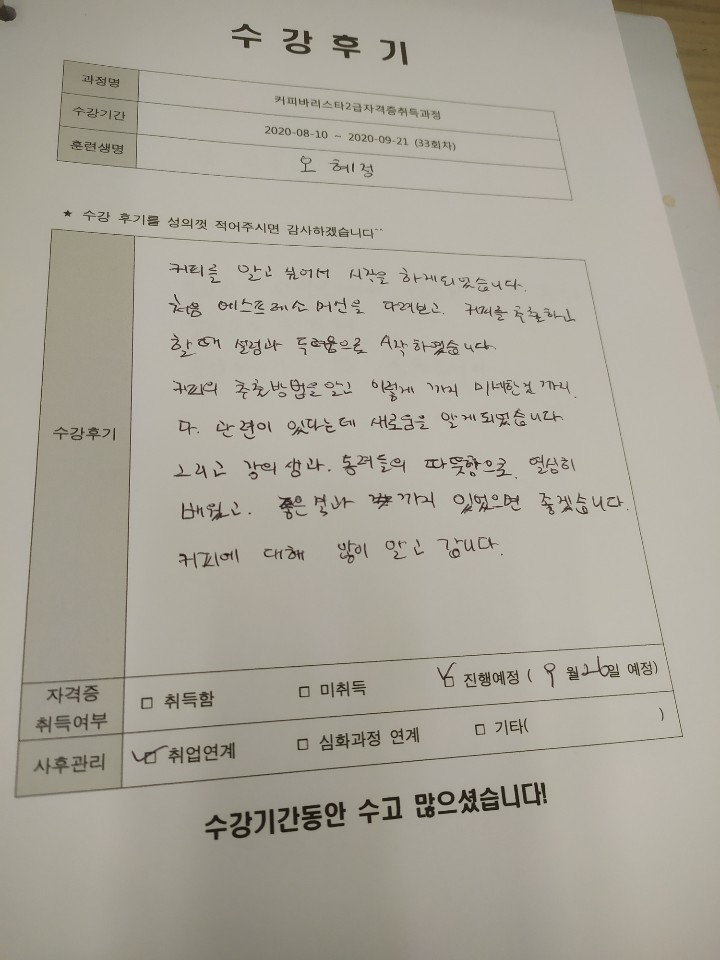 수 강 후 기
과정명 커피바리스타2급자격증취득과정
수강기간 2020-08-10 ~ 2020-09-21 (33회차)
훈련생명 오 혜정
★ 수강 후기를 성의껏 적어주시면 감사하겠습니다^^
커피를 알고 싶어서 시작을 하게되었습니다.
처음 에스프레소 머신을 다뤄보고. 커피를 추출하고
할때 설렘과 두려움으로 시작하였습니다.
커피의 추출방법을 알고 이렇게 까지 미세한것 까지.
수강후기 다. 관련이 있다는데 새로움을 알게되었습니다.
그리고 강의 생과. 동려들의 따뜻함으로. 열심히
배웠고. 좋은 결과 까지 있었으면 좋겠습니다.
커피에 대해 많이 알고 갑니다.
자격증 취득여부 □ 취득함 □ 미취득 ☑ 진행예정 ( 9 월 26일 예정)
사후관리 ☑ 취업연계 □ 심화과정 연계 □ 기타( )
수강기간동안 수고 많으셨습니다!